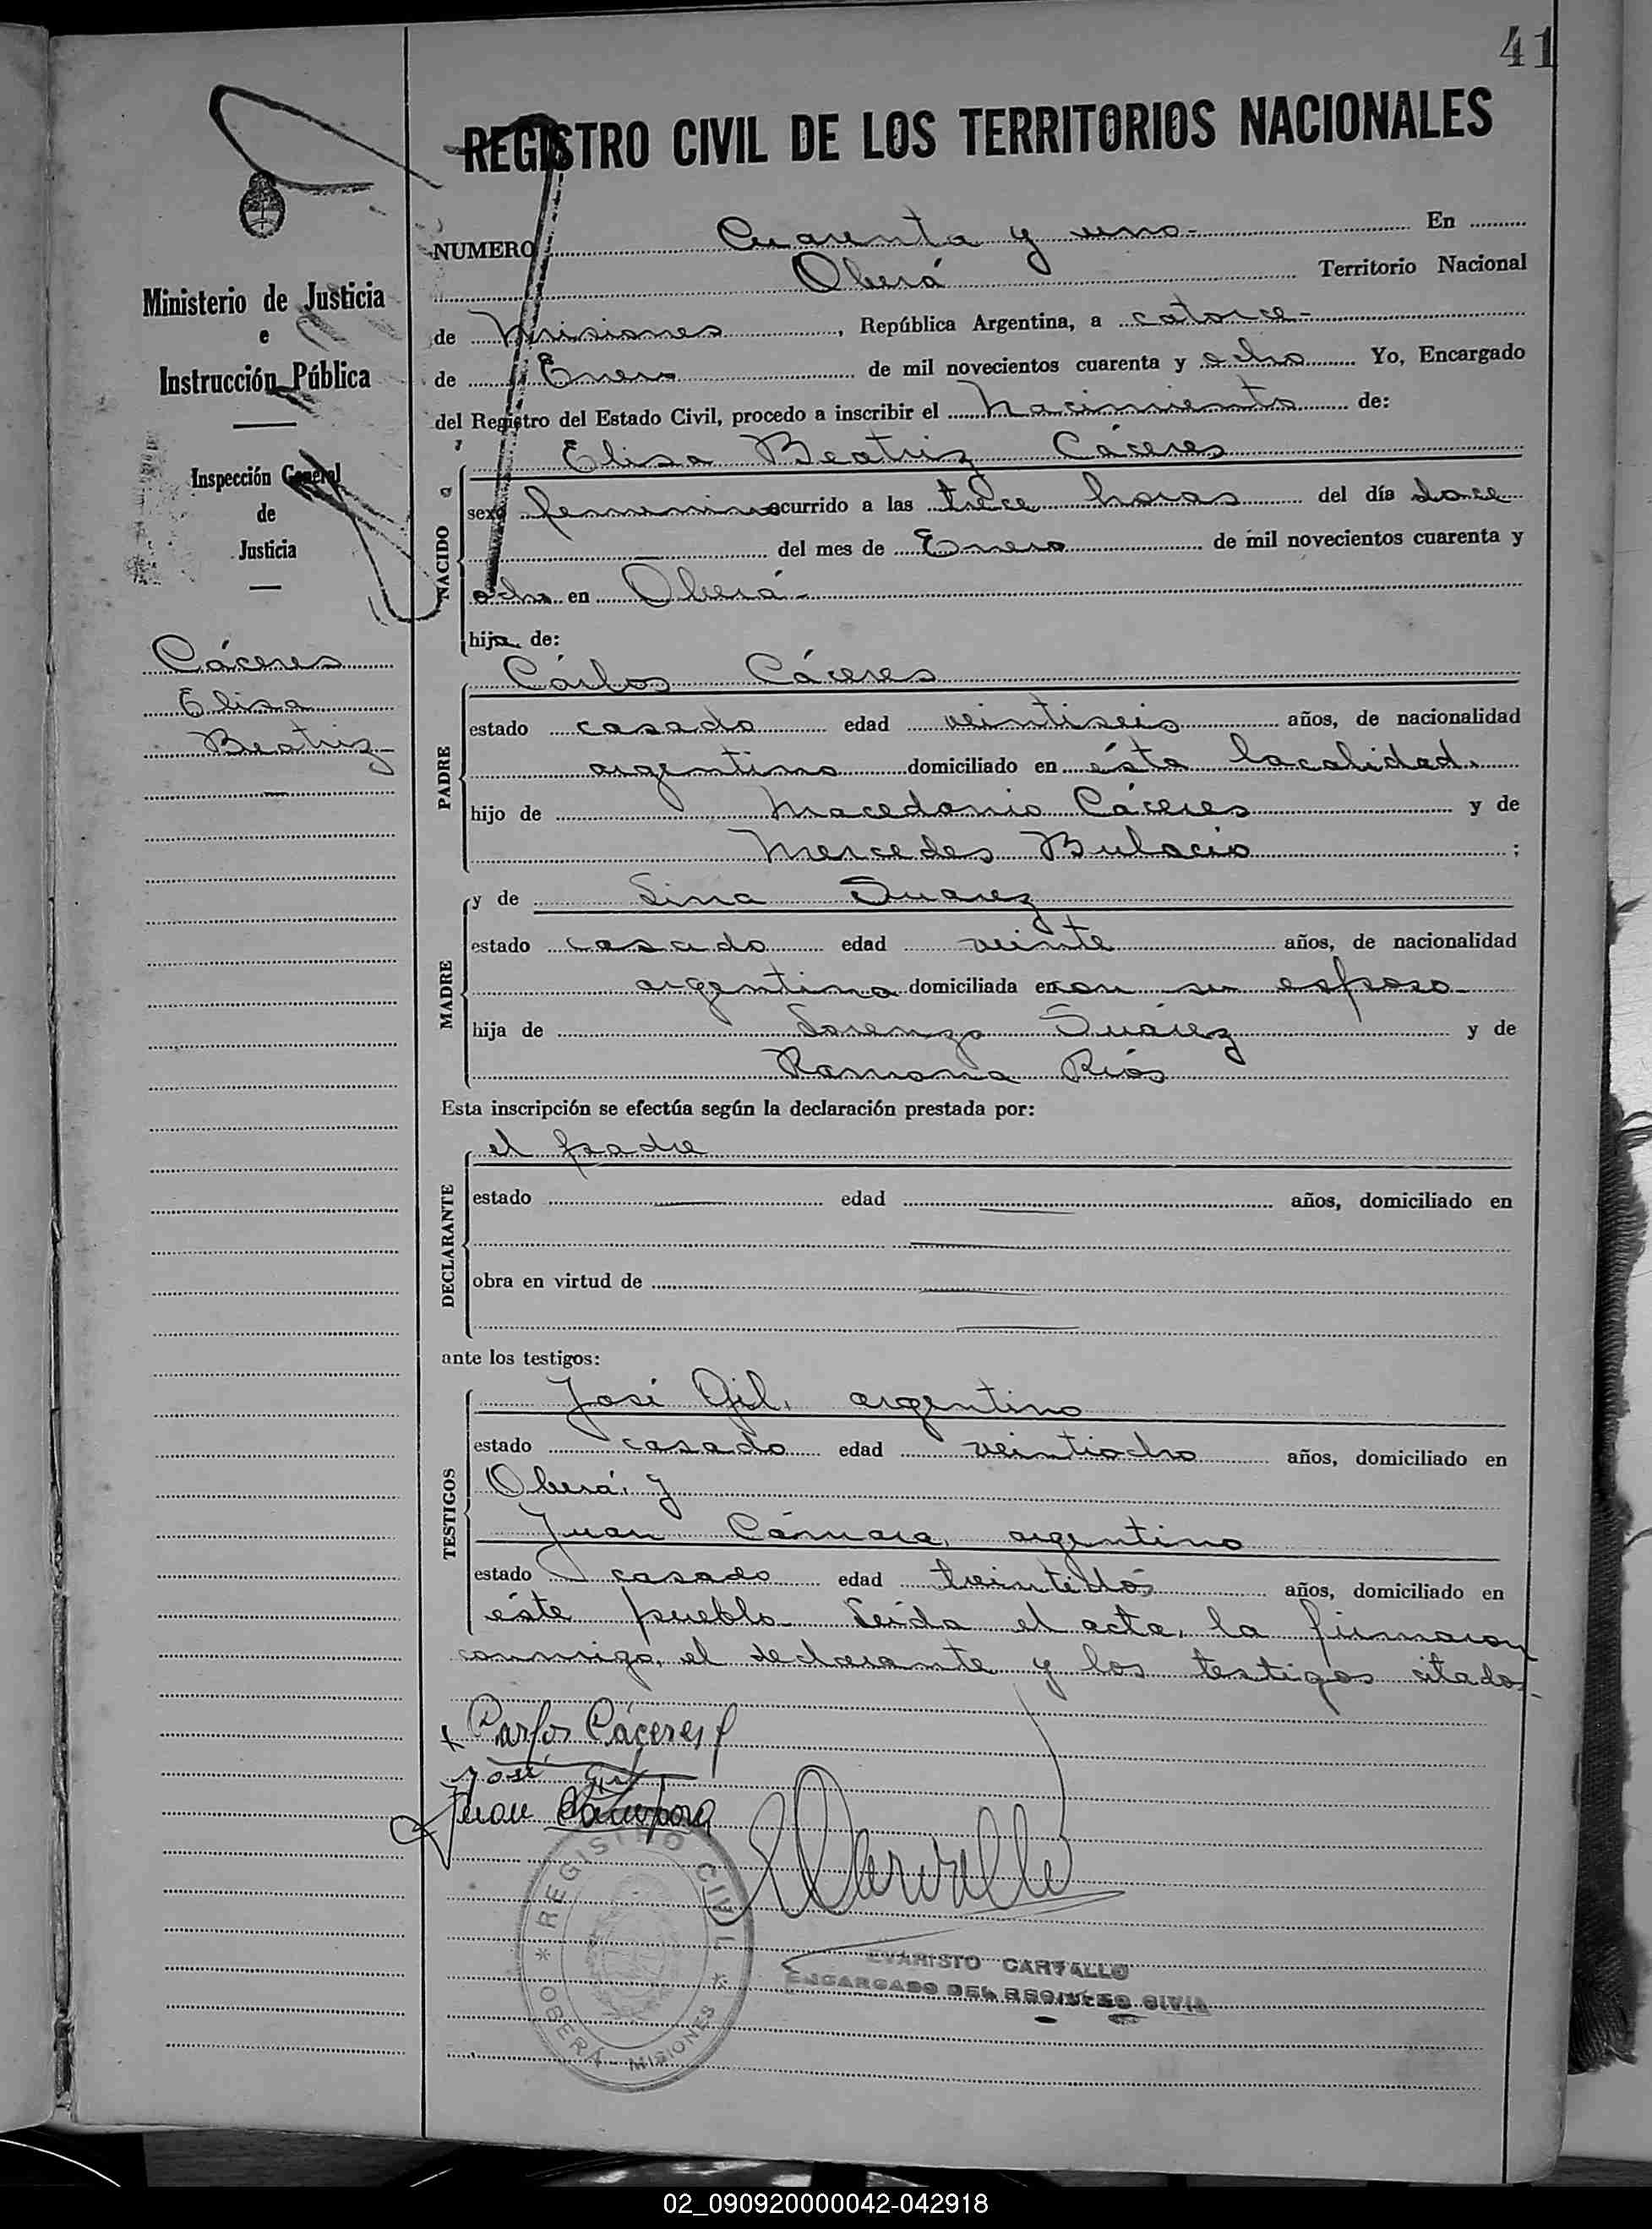 41
REGISTRO CIVIL DE LOS TERRITORIOS NACIONALES
NUMERO Cuarenta y uno- En
Oberá Territorio Nacional
de Misiones, República Argentina, a catorce-
de Enero de mil novecientos cuarenta y ocho Yo, Encargado
del Registro del Estado Civil, procedo a inscribir el nacimiento de:
Ministerio de Justicia
e
Instrucción Pública
Inspección General
de
Justicia
Cáceres
Elisa
Beatriz-
NACIDO a
Elisa Beatriz Cáceres
sexo femenino ocurrido a las trece horas del día doce
del mes de Enero de mil novecientos cuarenta y
ocho en Oberá-
hija de:
PADRE
Cárlos Cáceres
estado casado edad veintiseis años, de nacionalidad
argentino domiciliado en ésta localidad.
hijo de Macedonio Cáceres y de
Mercedes Bulacio ;
MADRE
y de Lina Suarez
estado casado edad veinte años, de nacionalidad
argentina domiciliada en con su esposo-
hija de Lorenzo Suárez y de
Ramona Ríos
Esta inscripción se efectúa según la declaración prestada por:
DECLARANTE
el padre
estado edad años, domiciliado en
obra en virtud de
ante los testigos:
TESTIGOS
José Gil, argentino
estado casado edad veintiocho años, domiciliado en
Oberá, y
Juan Cámara, argentino
estado casado edad treintidós años, domiciliado en
éste pueblo- Leída el acta, la firmaron
conmigo, el declarante y los testigos citados-
Carlos Cáceres
José Gil
Juan
REGISTRO CIVIL
* OBERÁ - MISIONES *
EVARISTO CARVALLO
ENCARGADO DEL REGISTRO CIVIL
02_090920000042-042918